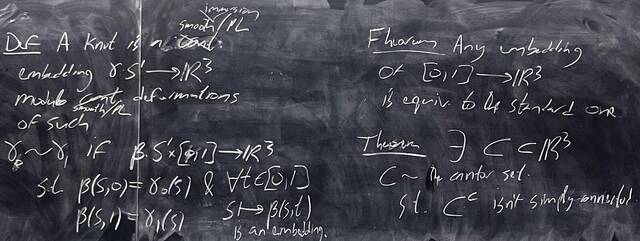 immersion
smooth/PL
Def A knot is a cont.
embedding γ: S¹ → ℝ³
modulo cont. deformations
smooth/PL
of such
γ₀ ~ γ₁ if β: S¹×[0,1] → ℝ³
st. β(s,0) = γ₀(s) & ∀t∈[0,1]
β(s,1) = γ₁(s) S ↦ β(s,t)
is an embedding.
Fheorem Any embedding
of [0,1] → ℝ³
is equiv to the standard one
Theorem ∃ C ⊂ ℝ³
C ~ the cantor set.
st. Cᶜ isn't simply connected.